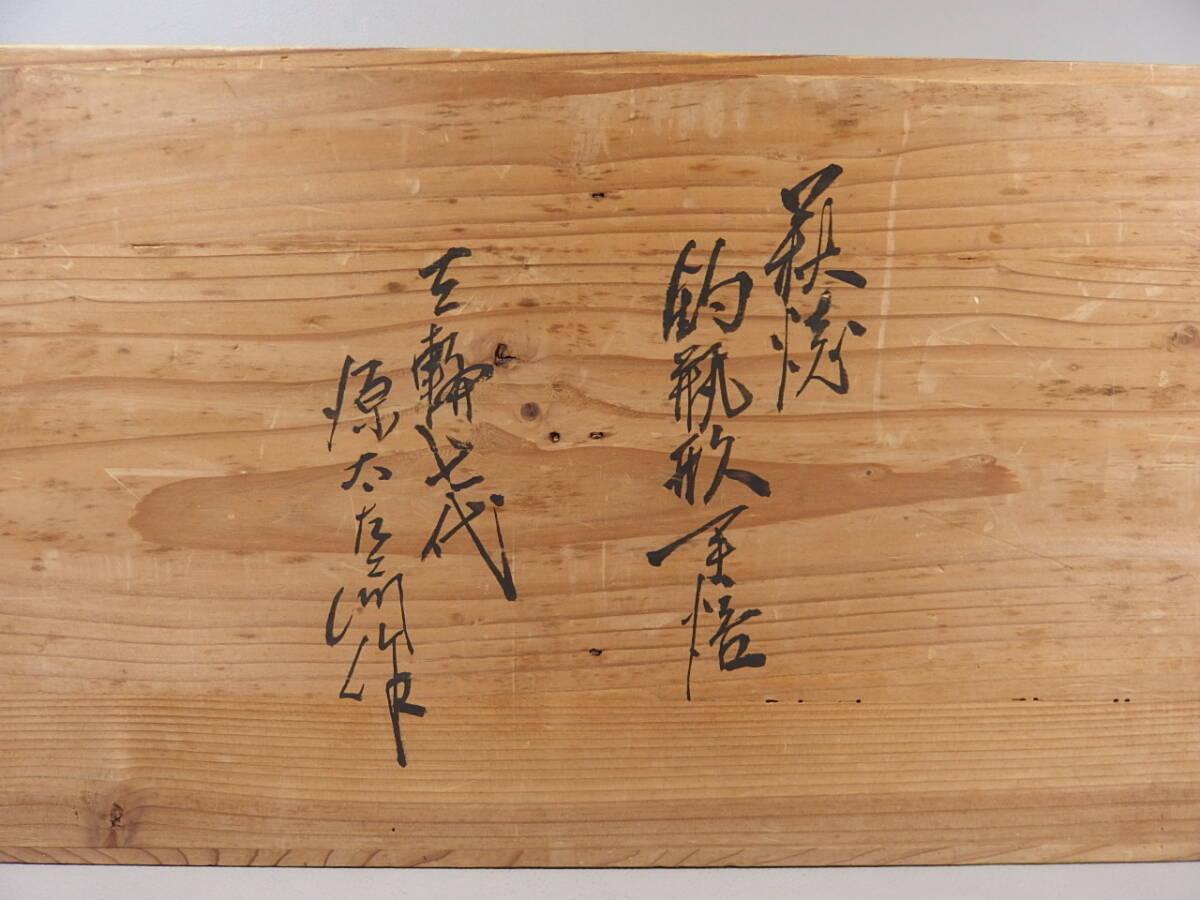 萩焼
釣瓶形手焙
三輪七代
源太左衛門作